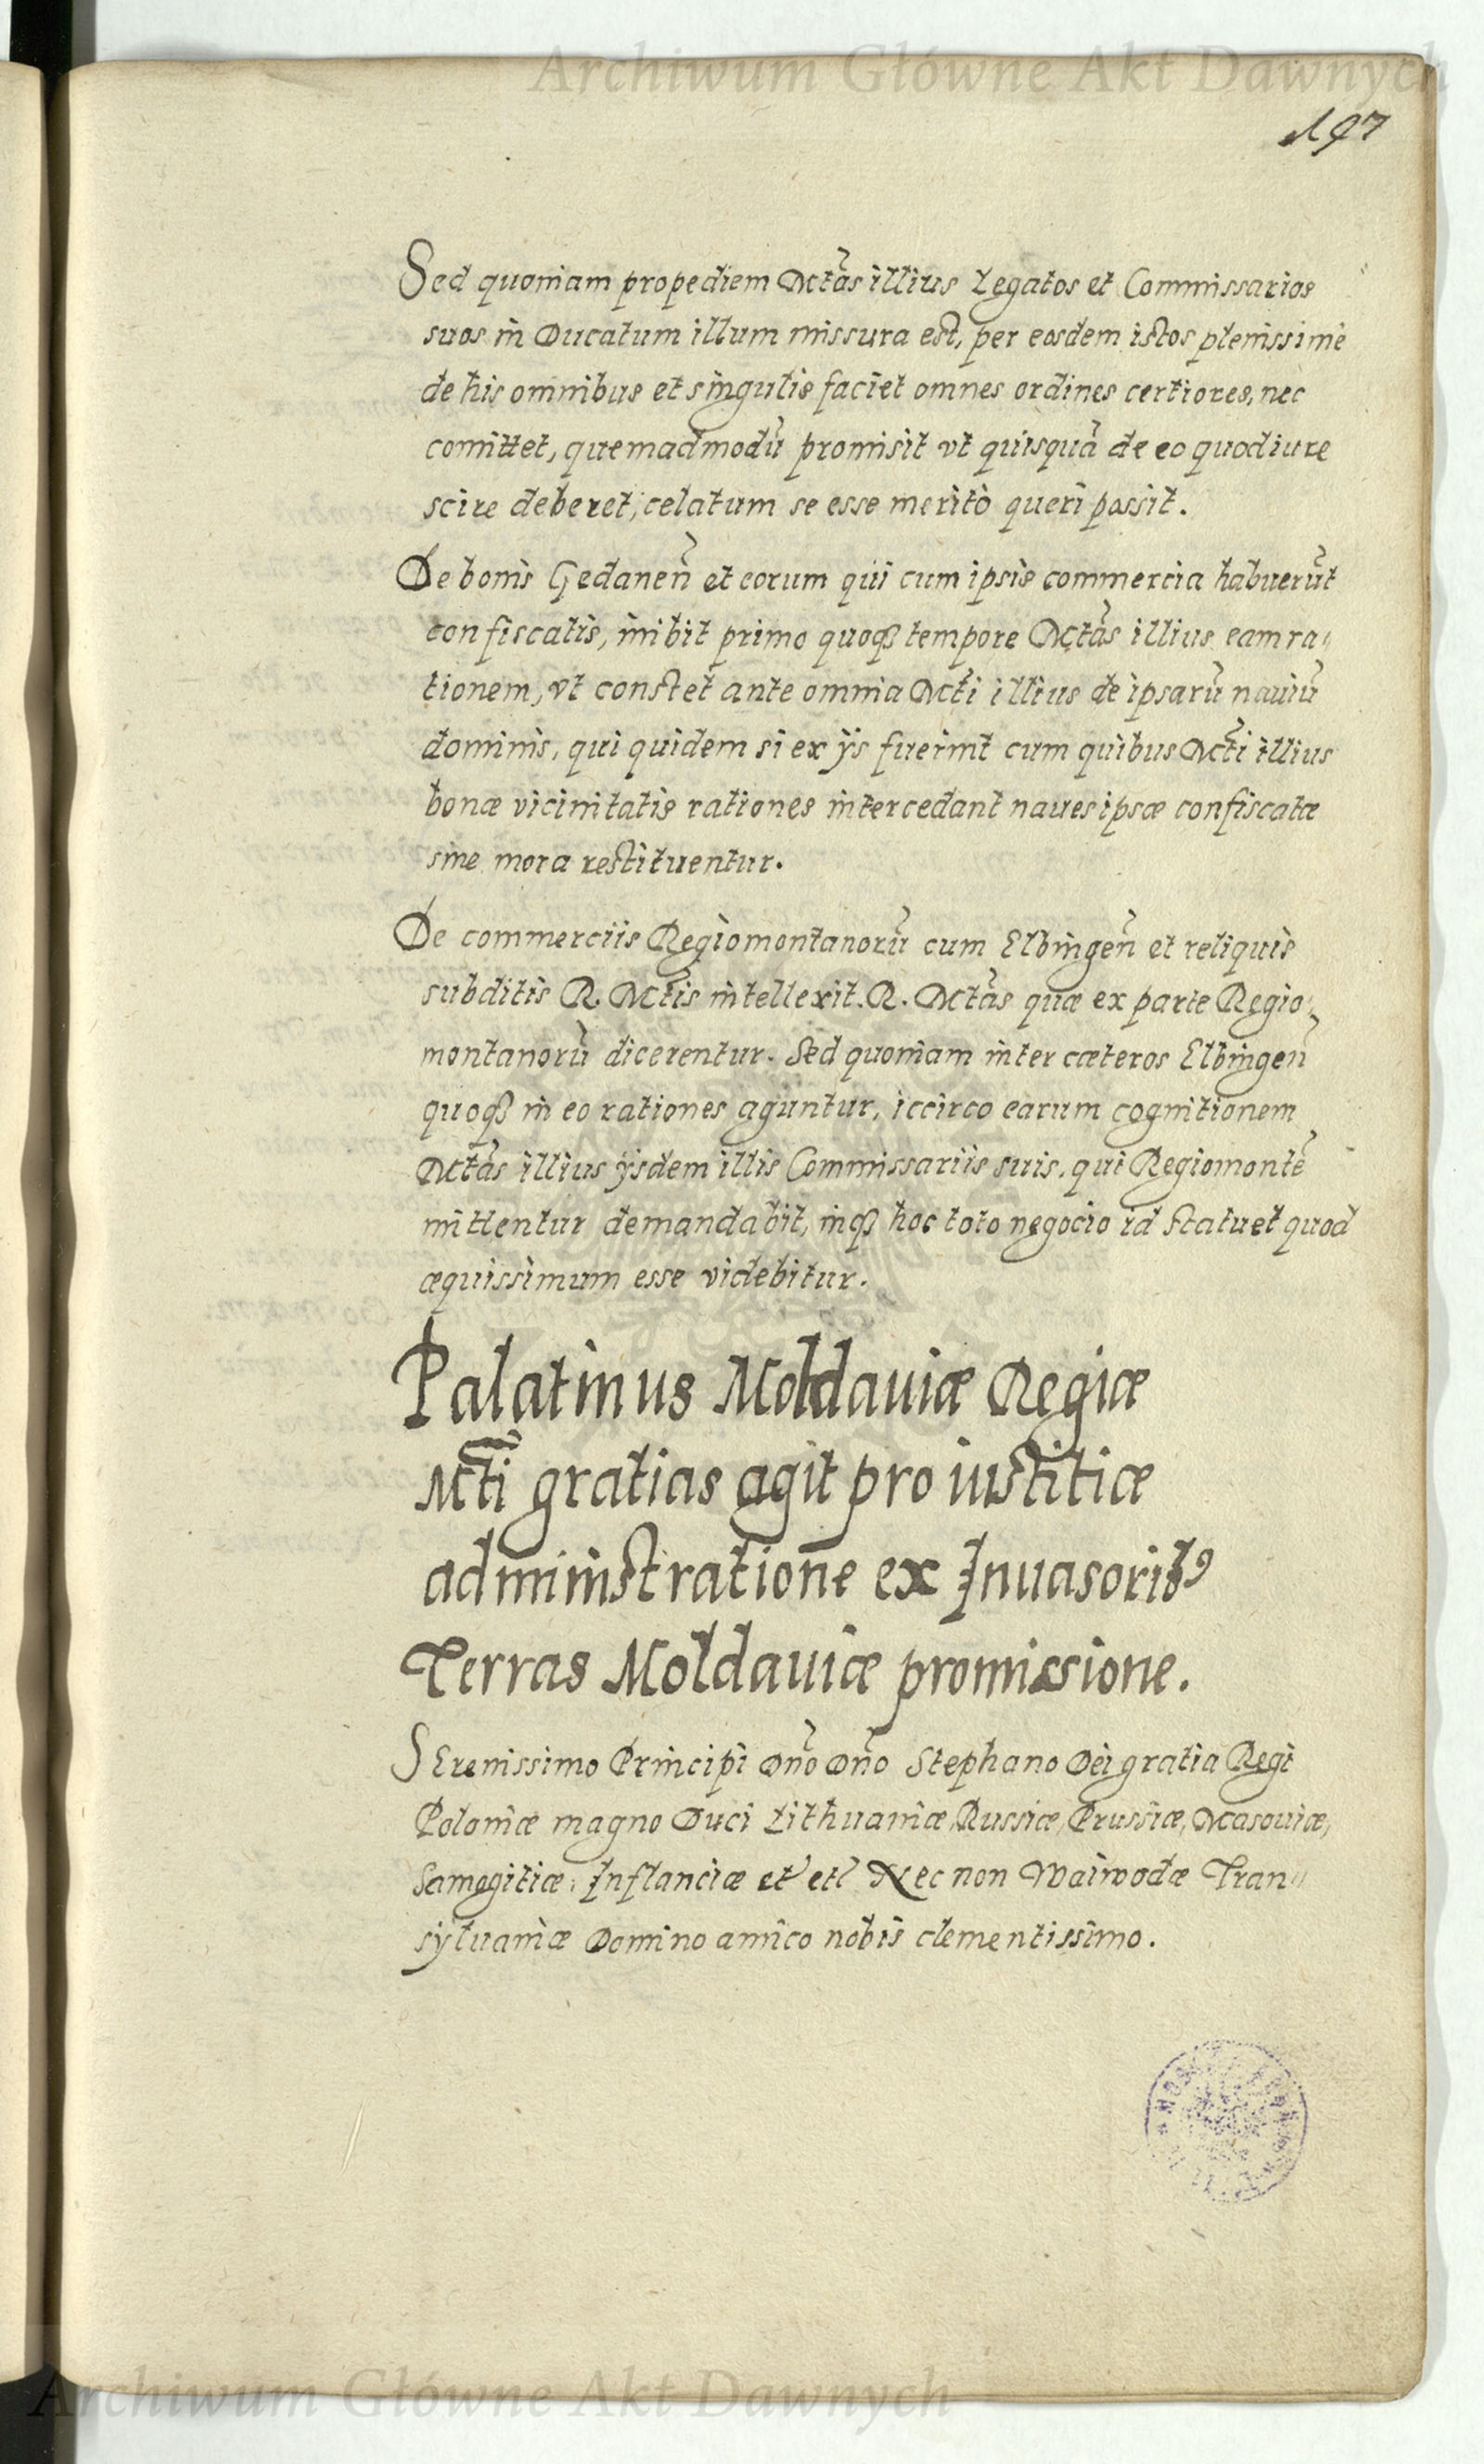 Archiwum Główne Akt Dawnych
197
Sed quoniam propediem Mctas illius Legatos et Commissarios
suos in Ducatum illum missura est, per eosdem istos plenissime
de his omnibus et singulis faciet omnes ordines certiores, nec
comittet, quemadmodũ promisit vt quisquã de eo quod iure
scire deberet, celatum se esse meritò queri possit.
De bonis Gedanen̄ et eorum qui cum ipsis commercia habuerũt
confiscatis, inibit primo quoqꝫ tempore Mctas illius eam ra-
tionem, vt constet ante omnia Mcti illius de ipsarũ nauiũ
dominis, qui quidem si ex ijs fuerint cum quibus Mcti illius
bonæ vicinitatis rationes intercedant naues ipsæ confiscatæ
sine mora restituentur.
De commerciis Regiomontanorũ cum Elbingen̄ et reliquis
subditis R. Mctis intellexit. R. Mctas quæ ex parte Regio-
montanorũ dicerentur. Sed quoniam inter cæteros Elbingen̄
quoqꝫ in eo rationes aguntur, iccirco earum cognitionem
Mctas illius ijsdem illis Commissariis suis, qui Regiomontẽ
mittentur demandabit, inqꝫ hoc toto negocio id statuet quod
æquissimum esse videbitur.
Palatinus Moldauiæ Regiæ
Mcti gratias agit pro iustitiæ
administratione ex Inuasoribꝰ
Terras Moldauiæ promissione.
SErenissimo Principi Dño Dño Stephano Dei gratia Regi
Poloniæ magno Duci Lithuaniæ, Russiæ, Prussiæ, Masouiæ,
Samogitiæ, Inflanciæ etc etc Nec non Waiwodæ Tran-
syluaniæ Domino amico nobis clementissimo.
Archiwum Główne Akt Dawnych